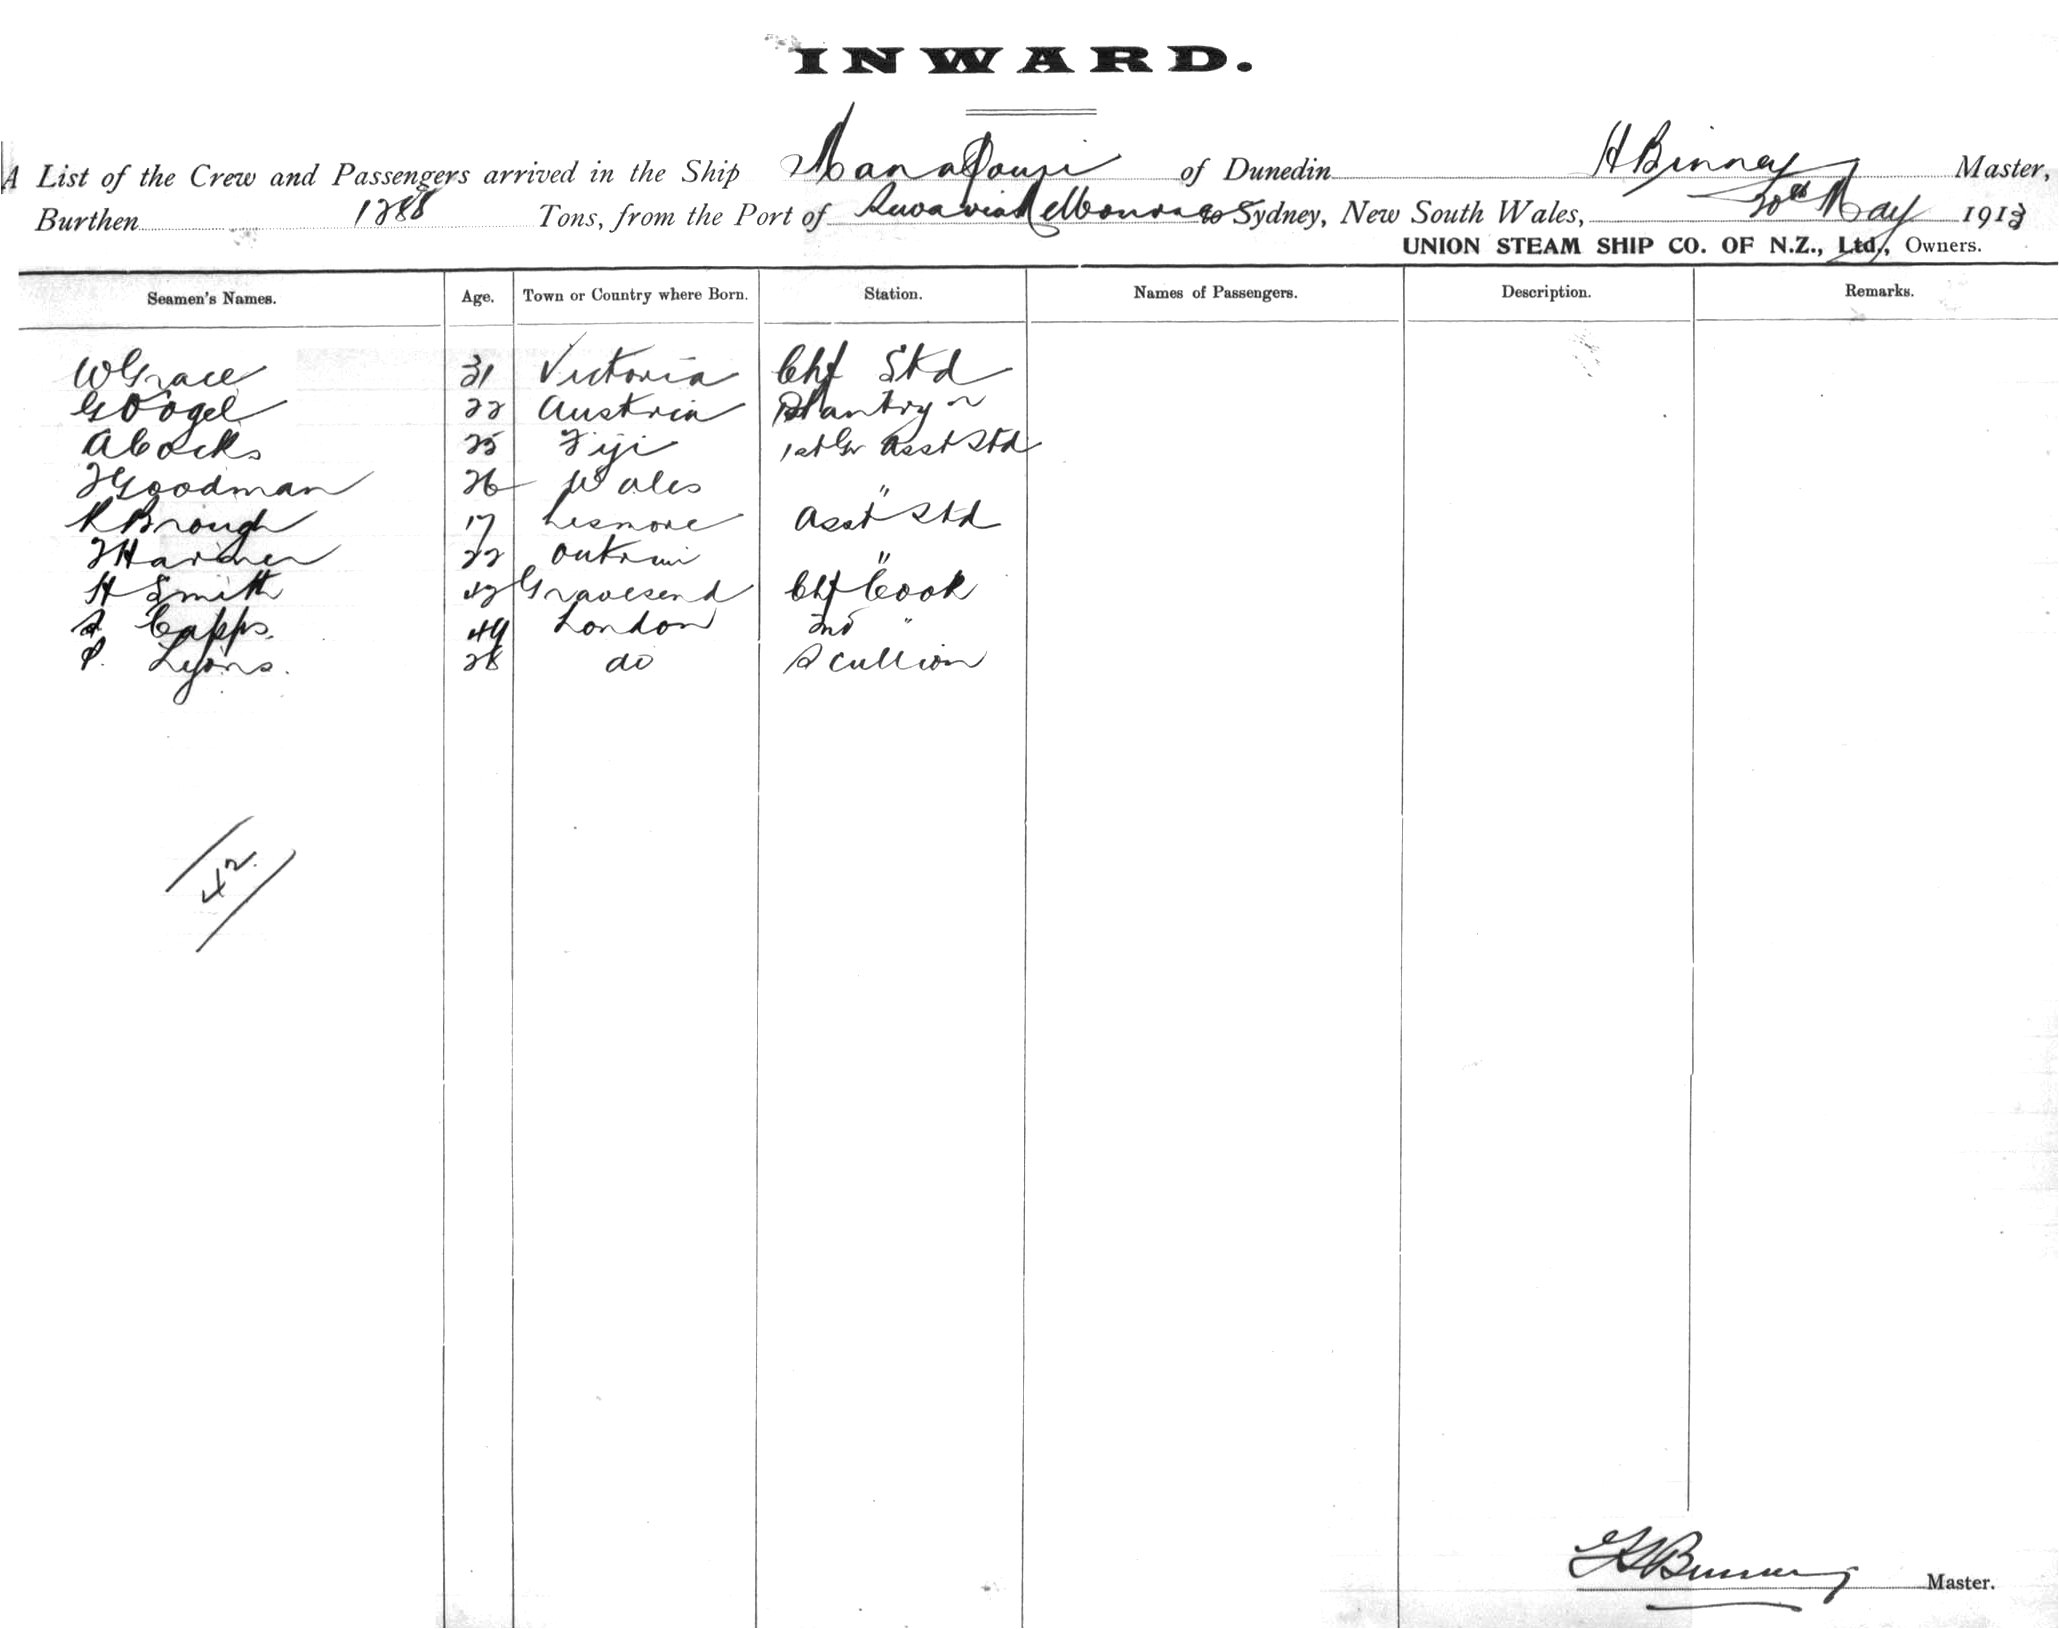 INWARD.
A List of the Crew and Passengers arrived in the Ship Manapouri of Dunedin H Binney Master,
Burthen 1288 Tons, from the Port of Suva via Melbourne to Sydney, New South Wales, 20th May 1913
UNION STEAM SHIP CO. OF N.Z., Ltd., Owners.
Seamen's Names. Age. Town or Country where Born. Station. Names of Passengers. Description. Remarks.
W Grace 31 Victoria Chf Std
G Vogel 22 Austria Pantry
A Cocks 25 Fiji 1st Gr Asst Std
Goodman 26 Wales "
R Brough 17 Lismore Asst Std
22 "
H Smith Gravesend Chf Cook
Capps. 49 London 2nd "
P. Lyons. 28 do Scullion
42.
Binney Master.